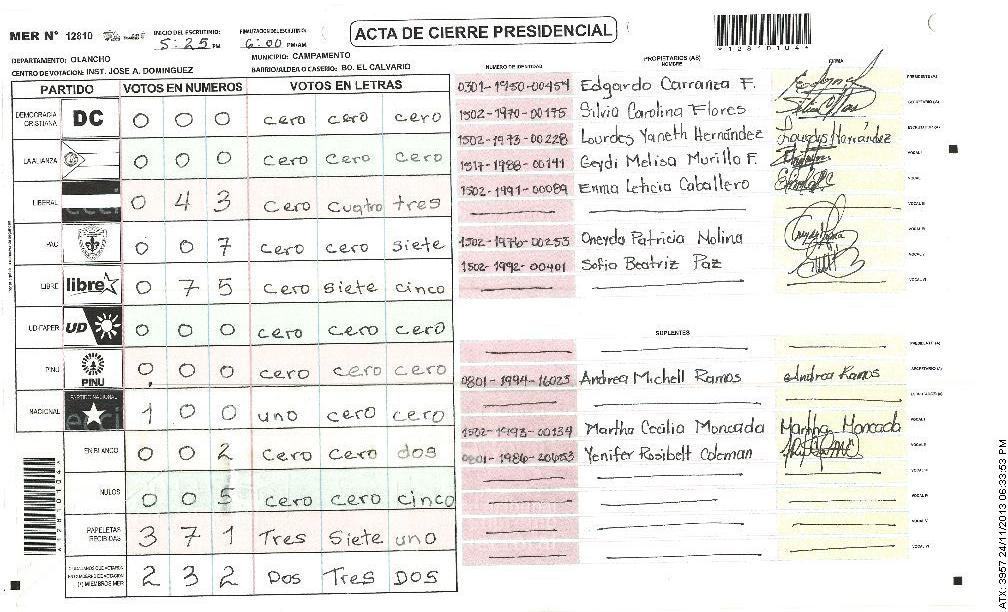 MER Nº 12810
INICIO DEL ESCRUTINIO:
5:25 PM
FINALIZACION DEL ESCRUTINIO:
6:00 PM/AM
ACTA DE CIERRE PRESIDENCIAL
*12810104*
DEPARTAMENTO: OLANCHO
MUNICIPIO: CAMPAMENTO
CENTRO DE VOTACION: INST. JOSE A. DOMINGUEZ
BARRIO/ALDEA O CASERIO: BO. EL CALVARIO
PARTIDO VOTOS EN NUMEROS VOTOS EN LETRAS
DEMOCRACIA CRISTIANA DC 0 0 0 cero cero cero
LA ALIANZA 0 0 0 cero cero cero
LIBERAL 0 4 3 cero cuatro tres
PAC 0 0 7 cero cero siete
LIBRE libre 0 7 5 cero siete cinco
UD-FAPER UD 0 0 0 cero cero cero
PINU PINU 0 0 0 cero cero cero
NACIONAL PARTIDO NACIONAL 1 0 0 uno cero cero
EN BLANCO 0 0 2 cero cero dos
NULOS 0 0 5 cero cero cinco
PAPELETAS RECIBIDAS 3 7 1 Tres Siete uno
(*) MIEMBROS MER 2 3 2 Dos Tres Dos
NUMERO DE IDENTIDAD
PROPIETARIOS (AS)
NOMBRE
FIRMA
0301-1950-00454 Edgardo Carranza F. PRESIDENTE(A)
1502-1970-00175 Silvia Carolina Flores SECRETARIO (A)
1502-1973-00228 Lourdes Yaneth Hernández Lourdes Hernández ESCRUTADOR (A)
1517-1988-00141 Geydi Melisa Murillo F. VOCAL I
1502-1991-00089 Enma Leticia Caballero VOCAL II
VOCAL III
1502-1976-00253 Oneyda Patricia Molina VOCAL IV
1502-1992-00401 Sofia Beatriz Paz VOCAL V
VOCAL VI
SUPLENTES
PRESIDENTE (A)
0801-1994-16023 Andrea Michell Ramos Andrea Ramos SECRETARIO (A)
ESCRUTADOR (A)
1502-1993-00134 Martha Cecilia Moncada Martha Moncada VOCAL I
0801-1986-20653 Yenifer Rosibell Coleman VOCAL II
VOCAL III
VOCAL IV
VOCAL V
VOCAL VI
*12810104*
ATX: 3957 24/11/2013 06:33:53 PM